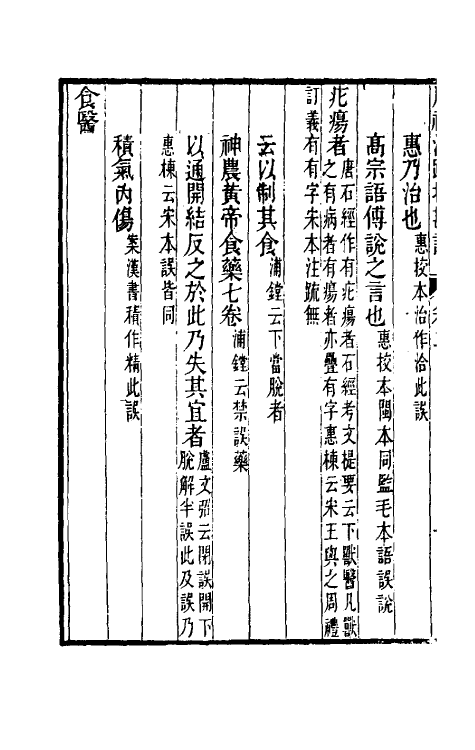 惠乃治也惠挍本治作洽此誤
高宗語傅說之言也惠挍本閩本同監毛本語誤說
疕瘍者唐石經作有疕瘍者石經考文提要云下獸醫凡獸
之有病者有瘍者亦疊有字惠棟云宋王與之周禮
訂義有有字宋本注䟽無
云以制其食浦鏜云下當脫者
神農黃帝食藥七卷浦鏜云禁誤藥
以通開結反之於此乃失其宜者盧文弨云閉誤開下
脫解半誤此及誤乃
惠棟云宋本誤皆同
積氣內傷案漢書積作精此誤
食醫